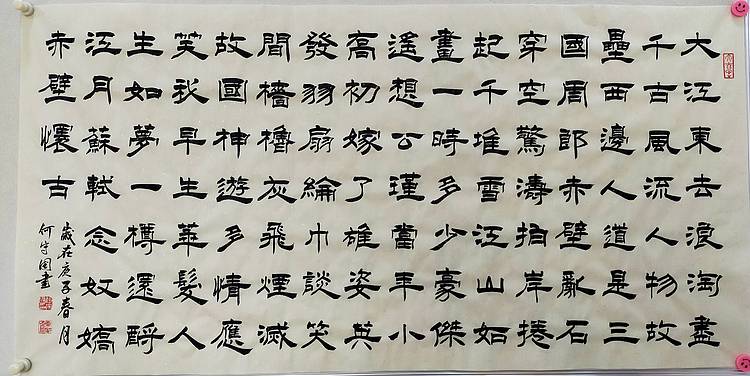 大江東去浪淘盡
千古風流人物故
壘西邊人道是三
國周郎赤壁亂石
穿空驚濤拍岸捲
起千堆雪江山如
畫一時多少豪傑
遙想公瑾當年小
喬初嫁了雄姿英
發羽扇綸巾談笑
間檣櫓灰飛煙滅
故國神遊多情應
笑我早生華髮人
生如夢一樽還酹
江月蘇軾念奴嬌
赤壁懷古
歲在庚子春月
何守書